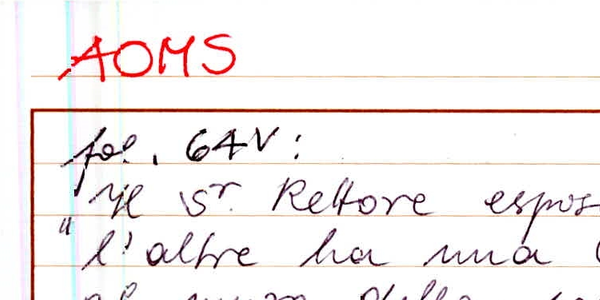 AOMS
fol. 64V:
"Il Sr. Rettore espos
"l'altre ha una